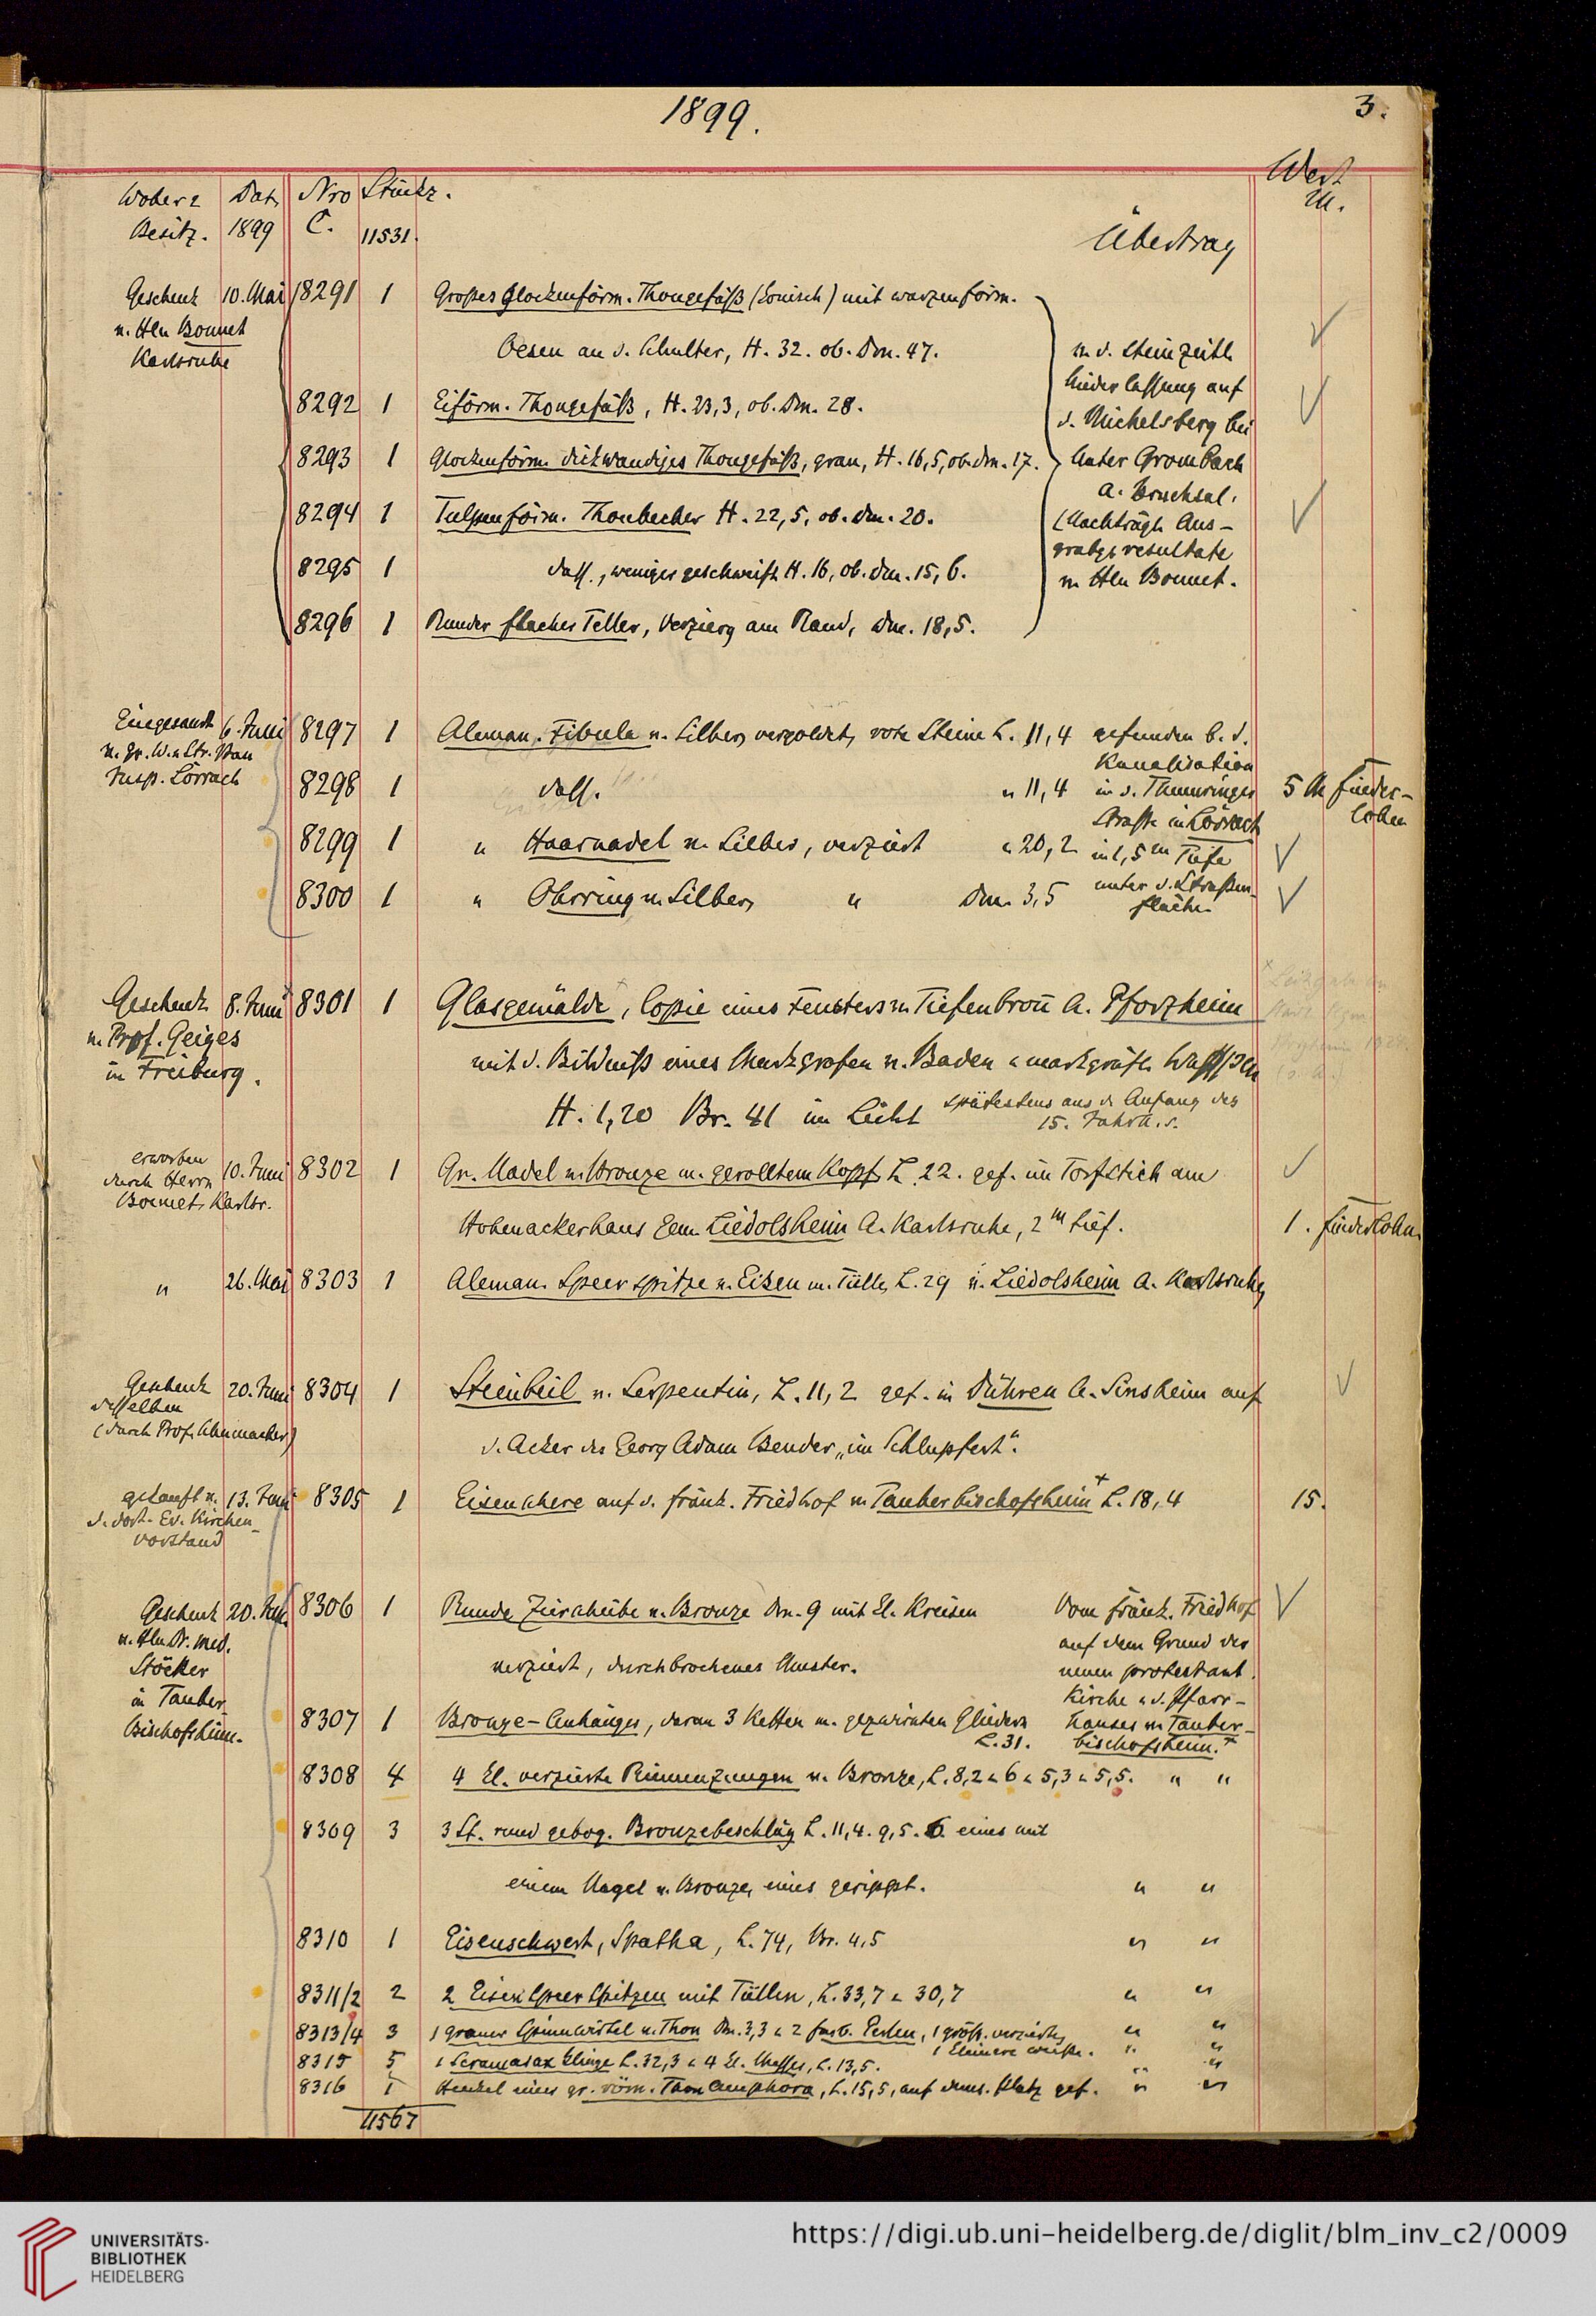 1899.
3.
Woher &
Besitz.
Dat.
1899
Nro
C.
Stückz.
11531.
Übertrag
Wert
M.
Geschenk
v. Hln Bonnet
Karlsruhe
10. Mai 8291 1 Großes glockenförm. Thongefäß (konisch) mit warzenförm.
Oesen an d. Schulter, H. 32. ob. Dm. 47.
8292 1 Eiförm. Thongefäß, H. 23,3, ob. Dm. 28.
8293 1 Glockenförm. dickwandiges Thongefäß, grau, H. 16,5, ob. Dm. 17.
8294 1 Tulpenförm. Thonbecher H. 22,5, ob. Dm. 20.
8295 1 dass., weniger geschweift H. 16, ob. Dm. 15,6.
8296 1 Runder flacher Teller, Verzierg am Rand, Dm. 18,5.
v. d. steinzeitl.
Niederlassung auf
d. Michelsberg bei
Unter Grombach
A. Bruchsal.
(Nachträgl. Aus-
grabgsresultate
v. Hln Bonnet.
Eingesandt
v. Gr. W. u. Str. Bau
Insp. Lörrach
6. Juni 8297 1 Aleman. Fibula v. Silber, vergoldet, rote Steine L. 11,4
8298 1 dass. " 11,4
8299 1 " Haarnadel v. Silber, verziert " 20,2
8300 1 " Ohrring v. Silber, " Dm. 3,5
gefunden b. d.
Kanalisation
in d. Thumringer
Straße in Lörrach
in 1,5 m Tiefe
unter d. Straßen-
fläche.
5 M Finder-
lohn
Geschenk
v. Prof. Geiges
in Freiburg.
8. Juni 8301 1 Glasgemälde, Copie eines Fensters v. Tiefenbroñ A. Pforzheim
mit d. Bildniß eines Markgrafen v. Baden u. markgräfl. Wappen
H. 1,20 Br. 41 im Licht spätestens aus d. Anfang des
15. Jahrh.s.
erworben
durch Herrn
Bonnet, Karlsr.
10. Juni 8302 1 Gr. Nadel v. Bronze m. gerolltem Kopf, L. 22. gef. im Torfstich am
Hohenackerhaus Gem. Liedolsheim A. Karlsruhe, 2 m tief.
1. Finderlohn.
" 26. Mai 8303 1 Aleman. Speerspitze v. Eisen m. Tülle, L. 29 v. Liedolsheim A. Karlsruhe
Geschenk
desselben
(durch Prof. Schumacher)
20. Juni 8304 1 Steinbeil v. Serpentin, L. 11,2 gef. in Dühren A. Sinsheim auf
d. Acker des Georg Adam Bender, „im Schlupfert“.
gekauft v.
d. dort. Ev. Kirchen-
vorstand
13. Juni 8305 1 Eisenschere auf d. fränk. Friedhof v. Tauberbischofsheim + L. 18,4
15.
Geschenk
v. Hln Dr. med.
Stöcker
in Tauber-
bischofsheim.
20. Jun. 8306 1 Runde Zierscheibe v. Bronze Dm. 9 mit kl. Kreisen
verziert, durchbrochenes Muster.
8307 1 Bronze-Anhänger, daran 3 Ketten m. gezwirnten Gliedern
L. 31.
Vom fränk. Friedhof
auf dem Grund der
neuen protestant.
Kirche u. d. Pfarr-
hauses v. Tauber-
bischofsheim. +
8308 4 4 kl. verzierte Riemenzungen v. Bronze, L. 8,2 u. 6 u. 5,3 u. 5,5. " "
8309 3 3 St. rund gebog. Bronzebeschläg L. 11,4. 9,5. 6 eines mit
einem Nagel v. Bronze, eines gerippt. " "
8310 1 Eisenschwert, Spatha, L. 74, Br. 4,5 " "
8311/2 2 2 Eisen Speerspitzen mit Tüllen, L. 33,7 u. 30,7 " "
8313/4 3 1 grauer Spinnwirtel v. Thon Dm. 3,3 u. 2 farb. Perlen, 1 größ. verzierte, " "
1 kleinere weiße. " "
8315 5 1 Scramasax Klinge L. 32,3 u. 4 kl. Messer, L. 13,5. " "
8316 1 Henkel eines gr. röm. Thon Amphora, L. 15,5, auf dems. Platz gef. " "
11567
UNIVERSITÄTS-
BIBLIOTHEK
HEIDELBERG
https://digi.ub.uni-heidelberg.de/diglit/blm_inv_c2/0009